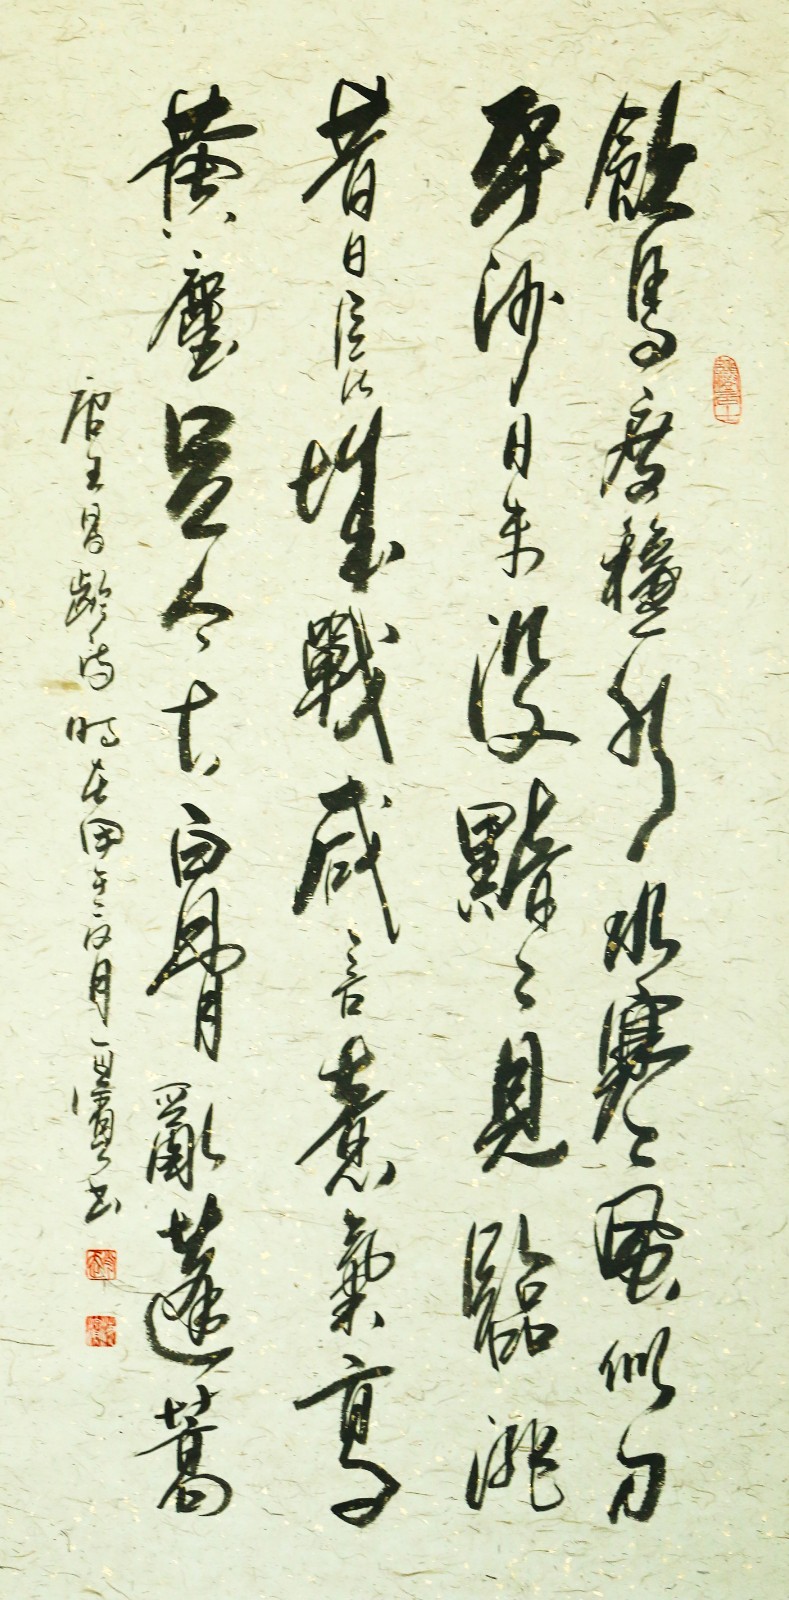 飲馬度穐水水寒風似刀
平沙日未没黯〻見臨洮
昔日長城戰咸言意氣高
黃塵足今古白骨亂蓬蒿
唐王昌齡詩時在甲午月書